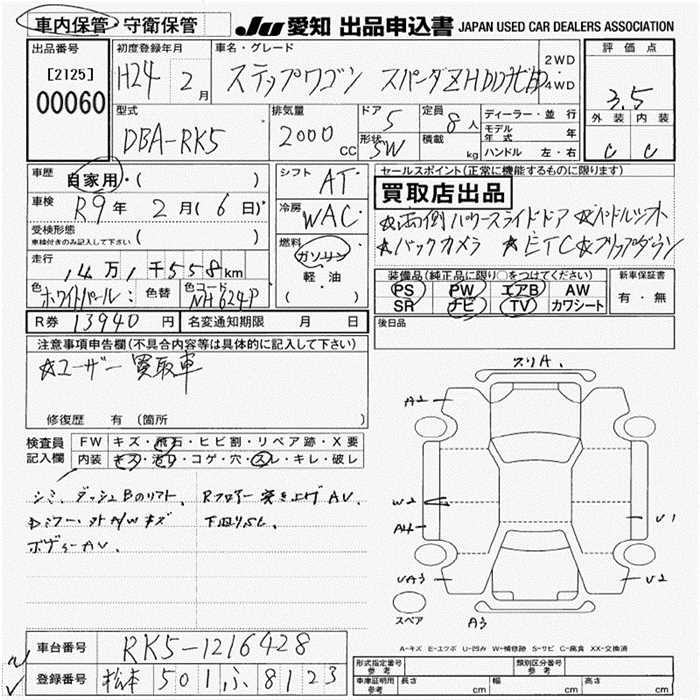 車内保管・守衛保管
JU 愛知 出品申込書 JAPAN USED CAR DEALERS ASSOCIATION
出品番号 初度登録年月 車名・グレード 評価点
[2125] H24 2月 ステップワゴン スパーダZ HDD 2WD 4WD 3.5
00060 型式 排気量 ドア 5 定員 8人 ディーラー・並行 外装 内装
DBA-RK5 2000CC 形状 SW 積載 kg モデル年式 年 C C
ハンドル 左・右
車歴 自家用・( ) シフト AT セールスポイント(正常に機能するものに限ります)
車検 R9年 2月(6日) 冷房 WAC 買取店出品
受検形態 車検付きのみ記入して下さい ( ) ☆両側パワースライドドア ☆パドルシフト
燃料 ガソリン ☆バックカメラ ☆ETC ☆フリップダウン
走行 14万1千558km 軽・油 装備品(純正品に限り○をつけてください) 新車保証書
色 ホワイトパール 色替 色コード NH624P ( ) PS PW エアB AW 有・無
SR ナビ TV カワシート
R券 13940円 名変通知期限 月 日 後日品
注意事項申告欄(不具合内容等は具体的に記入して下さい)
☆ユーザー買取車
修復歴 有 (箇所 )
検査員 FW キズ・飛石・ヒビ割・リペア跡・X要
記入欄 内装 キズ・汚れ・コゲ・穴・スレ・キレ・破レ
シミ、ダッシュBのリフト、Rフロアー突き上げAU、
ボディーAU、
スリA、
A2
W2
A4
U1
UA3
U2
スペア A3
A-キズ E-エクボ U-凹み W-補修跡 S-サビ C-腐食 XX-交換済
車台番号 RK5-1216428
登録番号 松本 501 ふ 8123
形式指定番号 参考 類別区分番号 参考
車庫証明用 参考 長さ cm 幅 cm 高さ cm